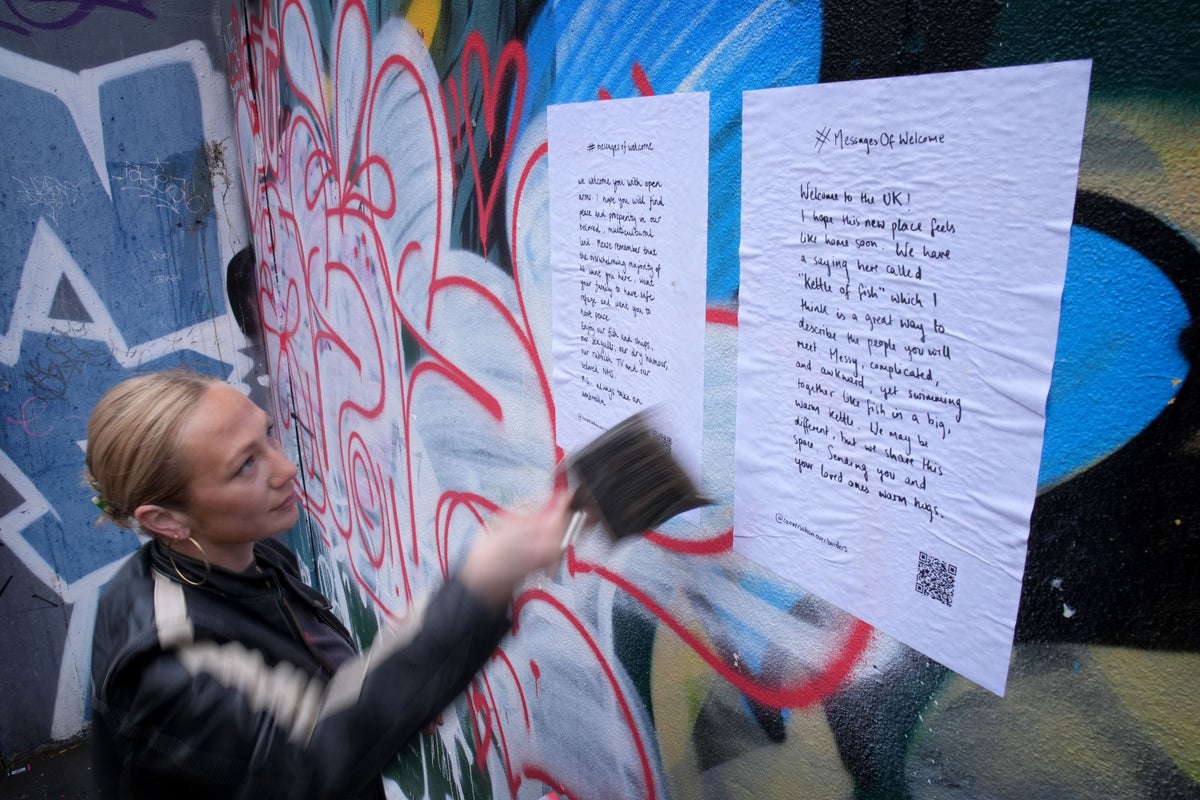 # messages of welcome
We welcome you with open
arms. I hope you will find
peace and prosperity in our
beloved, multicultural
land. Please remember that
the overwhelming majority of
us want you here, want
your family to have safe
refuge and want you to
have peace.
Enjoy our fish and chips,
our seagulls, our dry humour,
our rubbish TV and our
beloved NHS.
P.S. always take an
umbrella.
#MessagesOfWelcome
Welcome to the UK!
I hope this new place feels
like home soon. We have
a saying here called
"Kettle of fish" which I
think is a great way to
describe the people you will
meet. Messy, complicated,
and awkward, yet swimming
together like fish in a big,
warm kettle. We may be
different, but we share this
space. Sending you and
your loved ones warm hugs.
@conversationoverborders